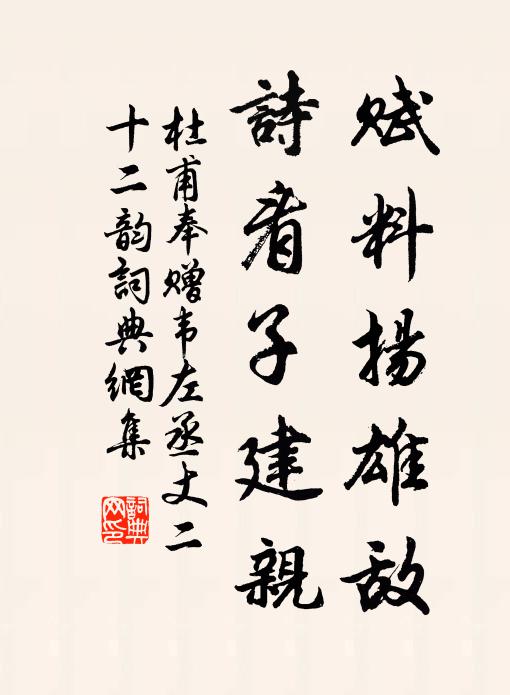 赋料揚雄敌
詩看子建親
杜甫奉赠韦左丞丈二
十二韵詞典網集
詞典网印